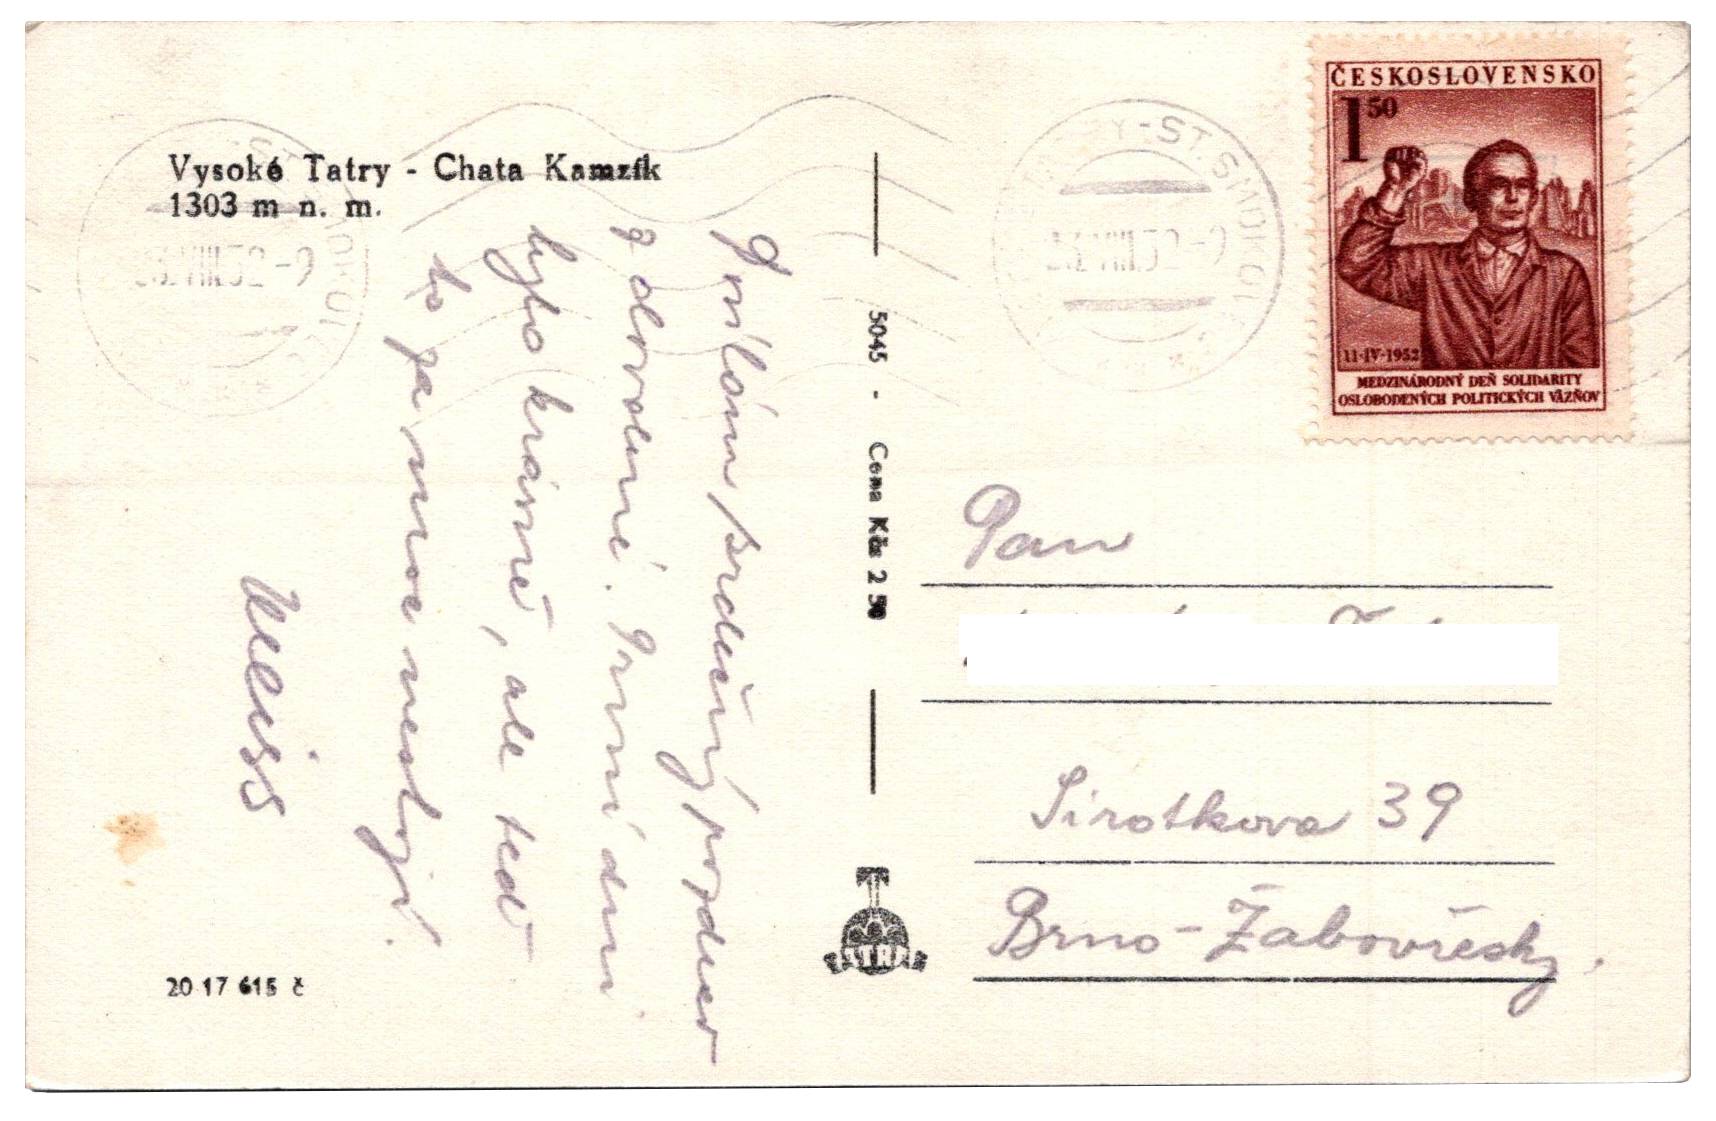 Vysoké Tatry - Chata Kamzík
1303 m n. m.
Posílám srdečný pozdrav
z dovolené. První dni
bylo krásně, ale teď
to za moc nestojí.
5045 - Cena Kčs 2 50
TATRAN
20 17 615 č
Y-ST. SMOKOVEC
VIII.52-9
Y-ST. SMOKOVEC
VIII.52-9
ČESKOSLOVENSKO
1 50
11·IV·1952
MEDZINÁRODNÝ DEŇ SOLIDARITY
OSLOBODENÝCH POLITICKÝCH VÄZŇOV
Pan
Sirotkova 39
Brno-Žabovřesky.